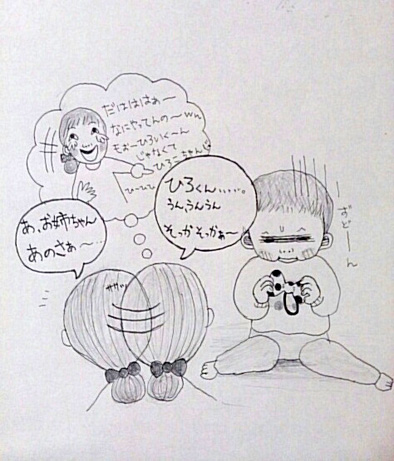 だはははぁ〜
なにやってんの〜ww
もぉーひろいく〜ん
じゃなくて
ひろこちゃん
ひろくん……。
うん、うんうん
そっかそっかぁ〜
あ、お姉ちゃん
あのさぁ〜…
ずどーん
ササッ